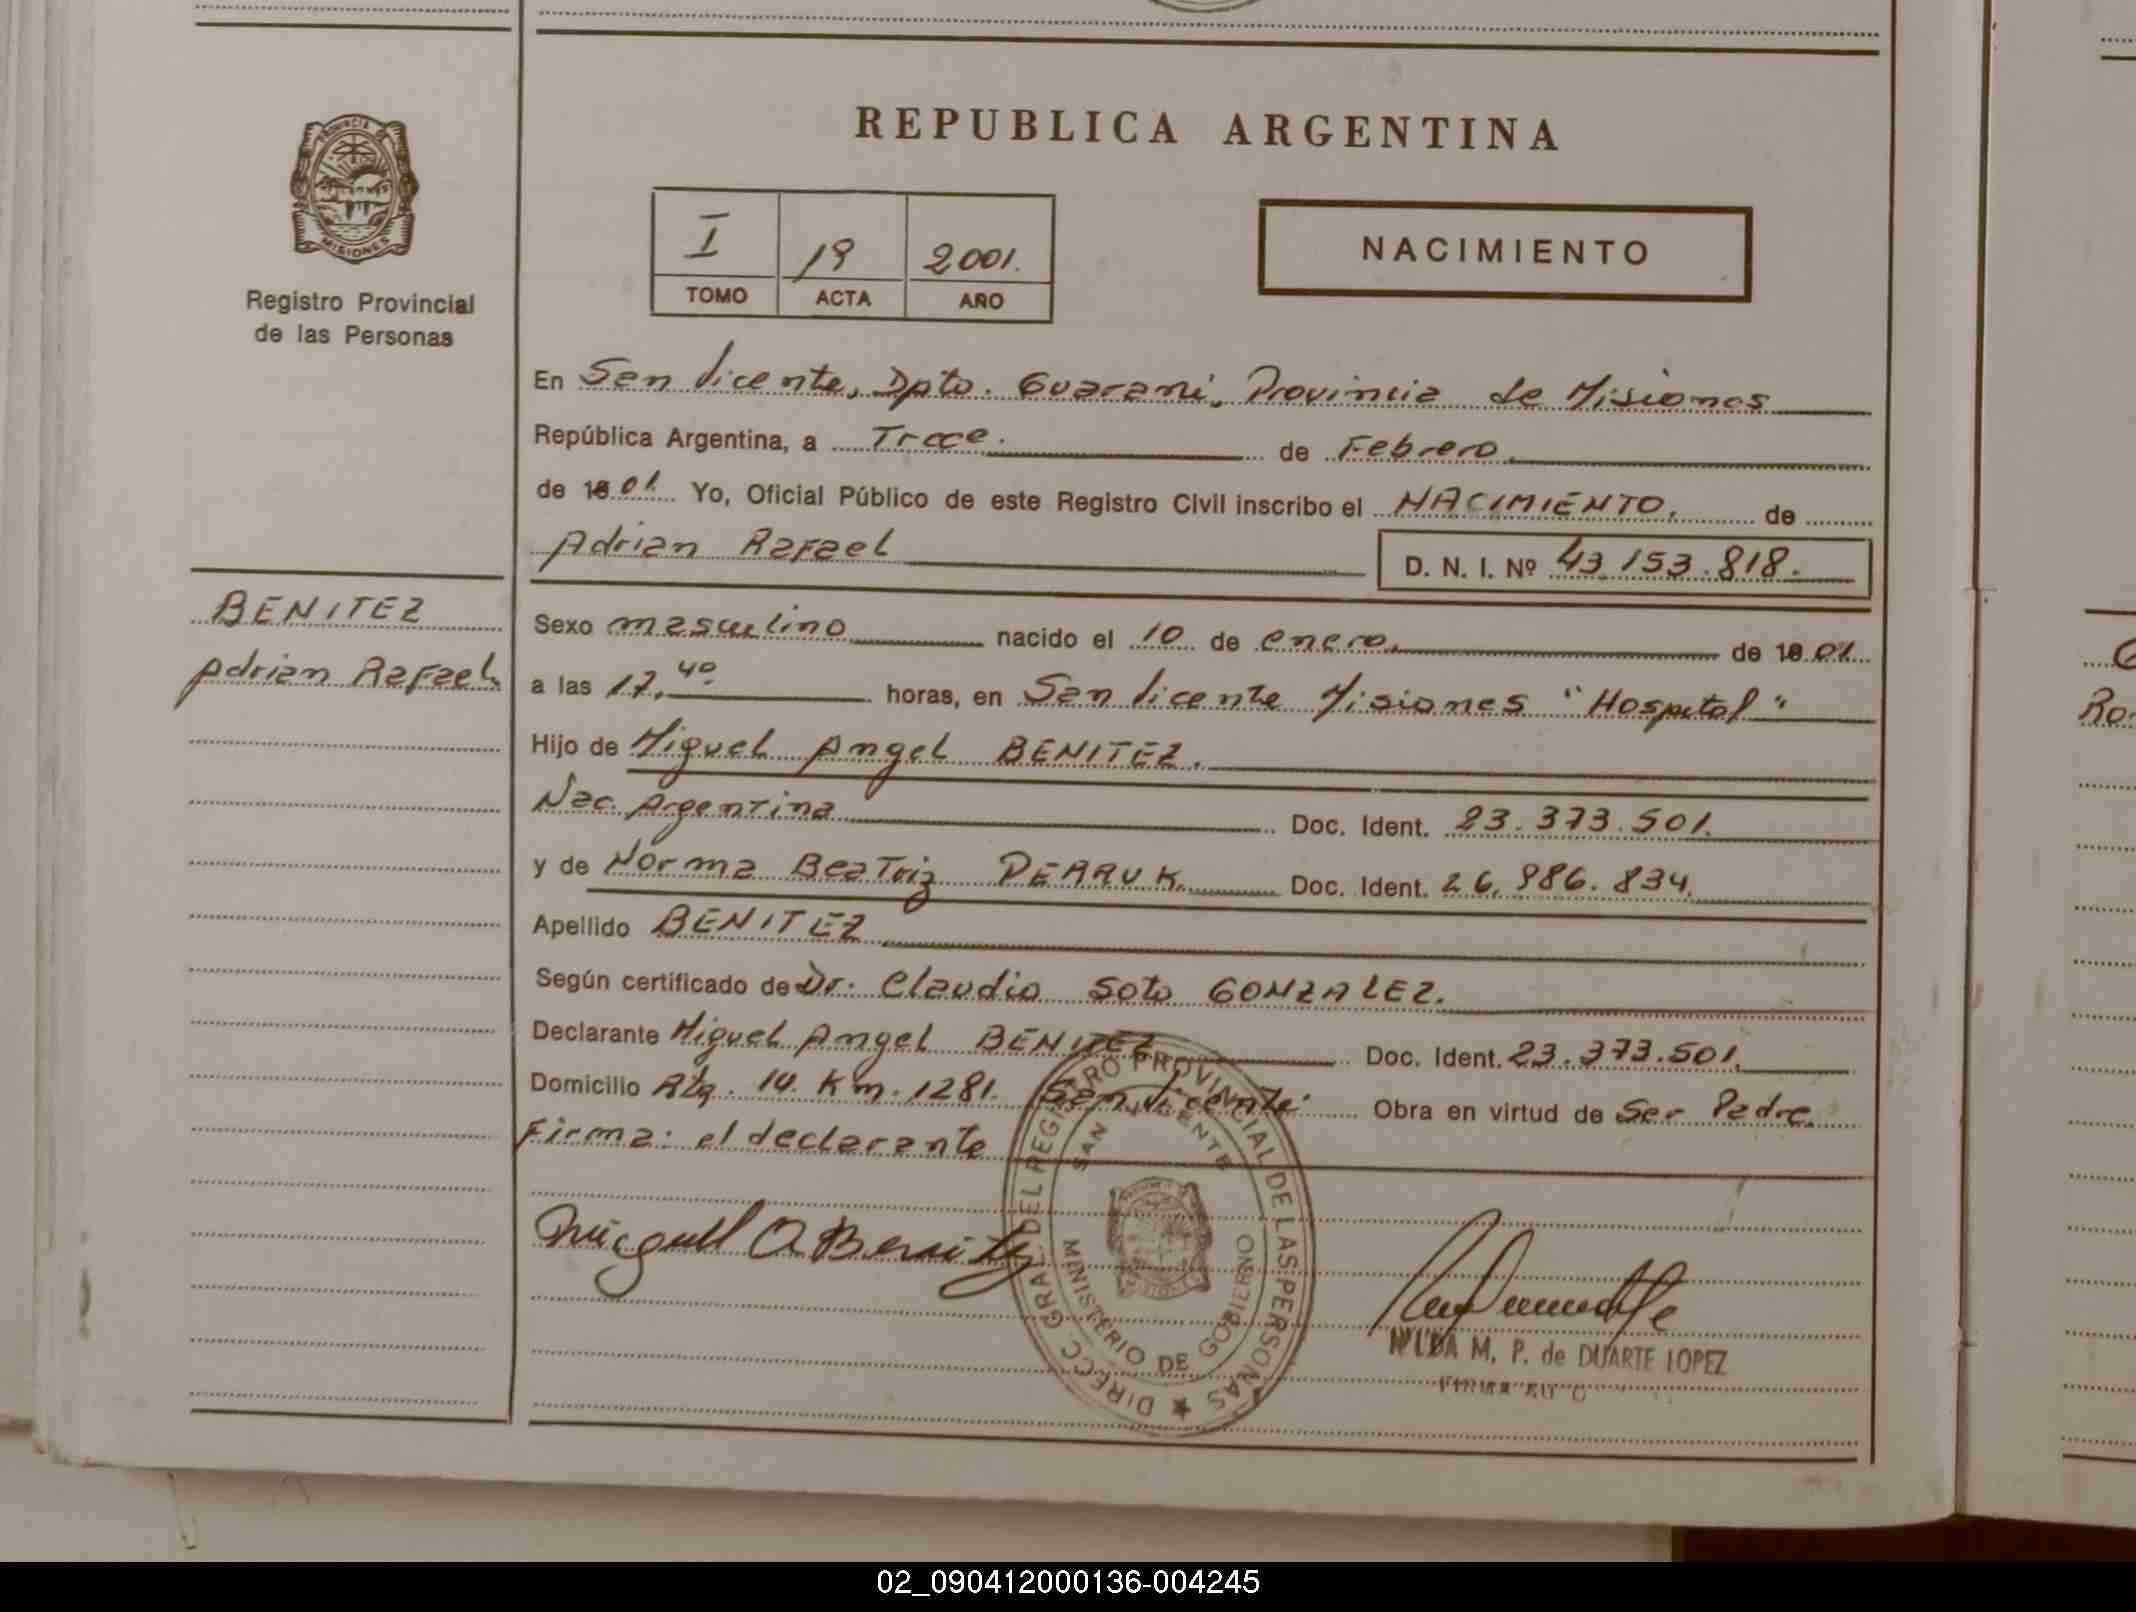 REPUBLICA ARGENTINA
PROVINCIA DE
MISIONES
Registro Provincial
de las Personas
I 19 2001.
TOMO ACTA AÑO
NACIMIENTO
En San Vicente, Dpto. Guarani, Provincia de Misiones
República Argentina, a Trece. de Febrero
de 01. Yo, Oficial Público de este Registro Civil inscribo el NACIMIENTO. de
Adrian Rafael
D. N. I. Nº 43.153.818.
BENITEZ
Adrian Rafael
Sexo masculino nacido el 10 de enero. de 01.
a las 17,40 horas, en San Vicente Misiones "Hospital"
Hijo de Miguel Angel BENITEZ.
Nac. Argentina Doc. Ident. 23.373.501.
y de Norma Beatriz Doc. Ident. 26.986.834.
Apellido BENITEZ
Según certificado de Dr. Claudio Soto GONZALEZ.
Declarante Miguel Angel BENITEZ Doc. Ident. 23.373.501.
Domicilio Rta. 14. Km. 1281. San Vicente. Obra en virtud de Ser Padre.
Firma: el declarante
Miguel A Benitez
DIRECC. GRAL. DEL REGISTRO PROVINCIAL DE LAS PERSONAS
SAN VICENTE
MINISTERIO DE GOBIERNO
M. P. de DUARTE LOPEZ
02_090412000136-004245